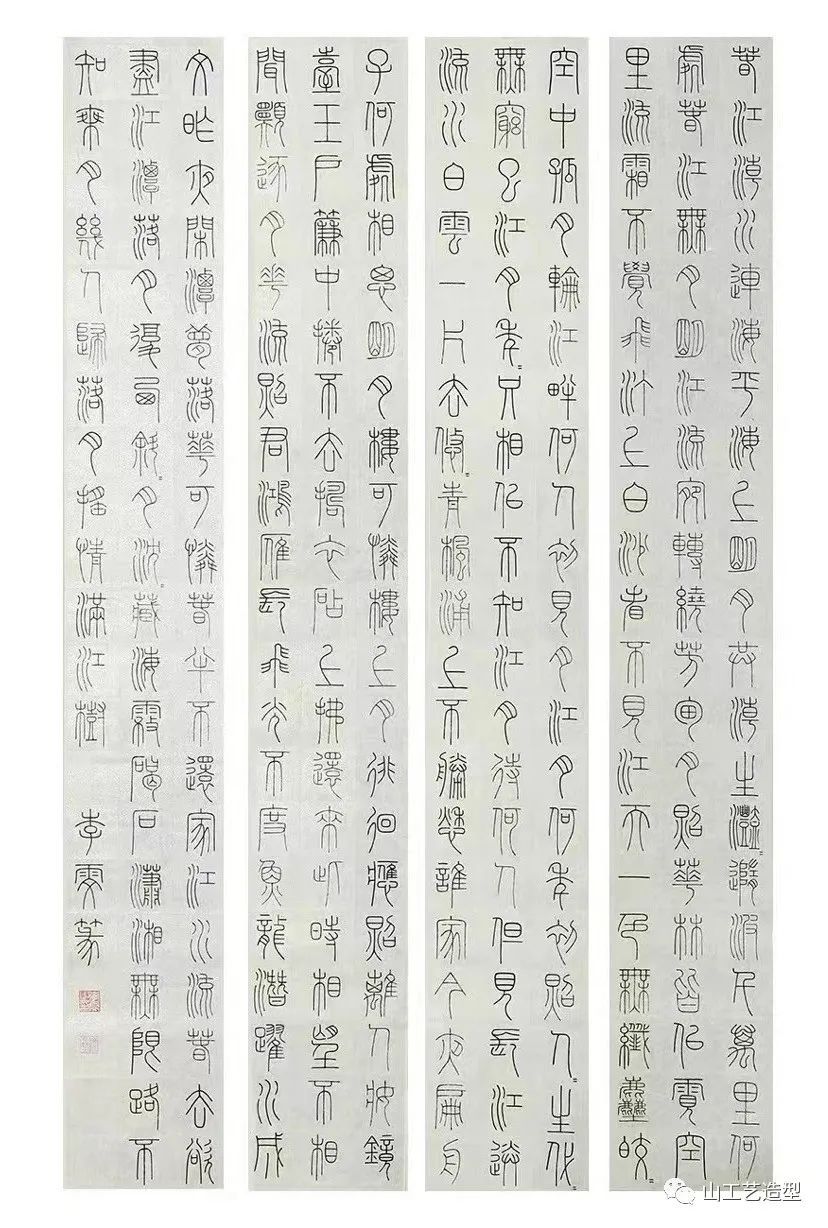 春江潮水連海平海上明月共潮生灩〻隨波千萬里何
處春江無月明江流宛轉繞芳甸月照華林皆似霰空
里流霜不覺飛汀上白沙看不見江天一色無纖塵皎〻
空中孤月輪江畔何人初見月江月何年初照人〻生代〻
無窮已江月年〻只相似不知江月待何人但見長江送
流水白雲一片去悠〻青楓浦上不勝愁誰家今夜扁舟
子何處相思明月樓可憐樓上月徘徊應照離人妝鏡
臺玉戶簾中捲不去搗衣砧上拂還來此時相望不相
聞願逐月華流照君鴻雁長飛光不度魚龍潛躍水成
文昨夜閒潭夢落華可憐春半不還家江水流春去欲
盡江潭落月復西斜〻月沈〻藏海霧碣石瀟湘無限路不
知乘月幾人歸落月搖情滿江樹 李篆
山工艺造型